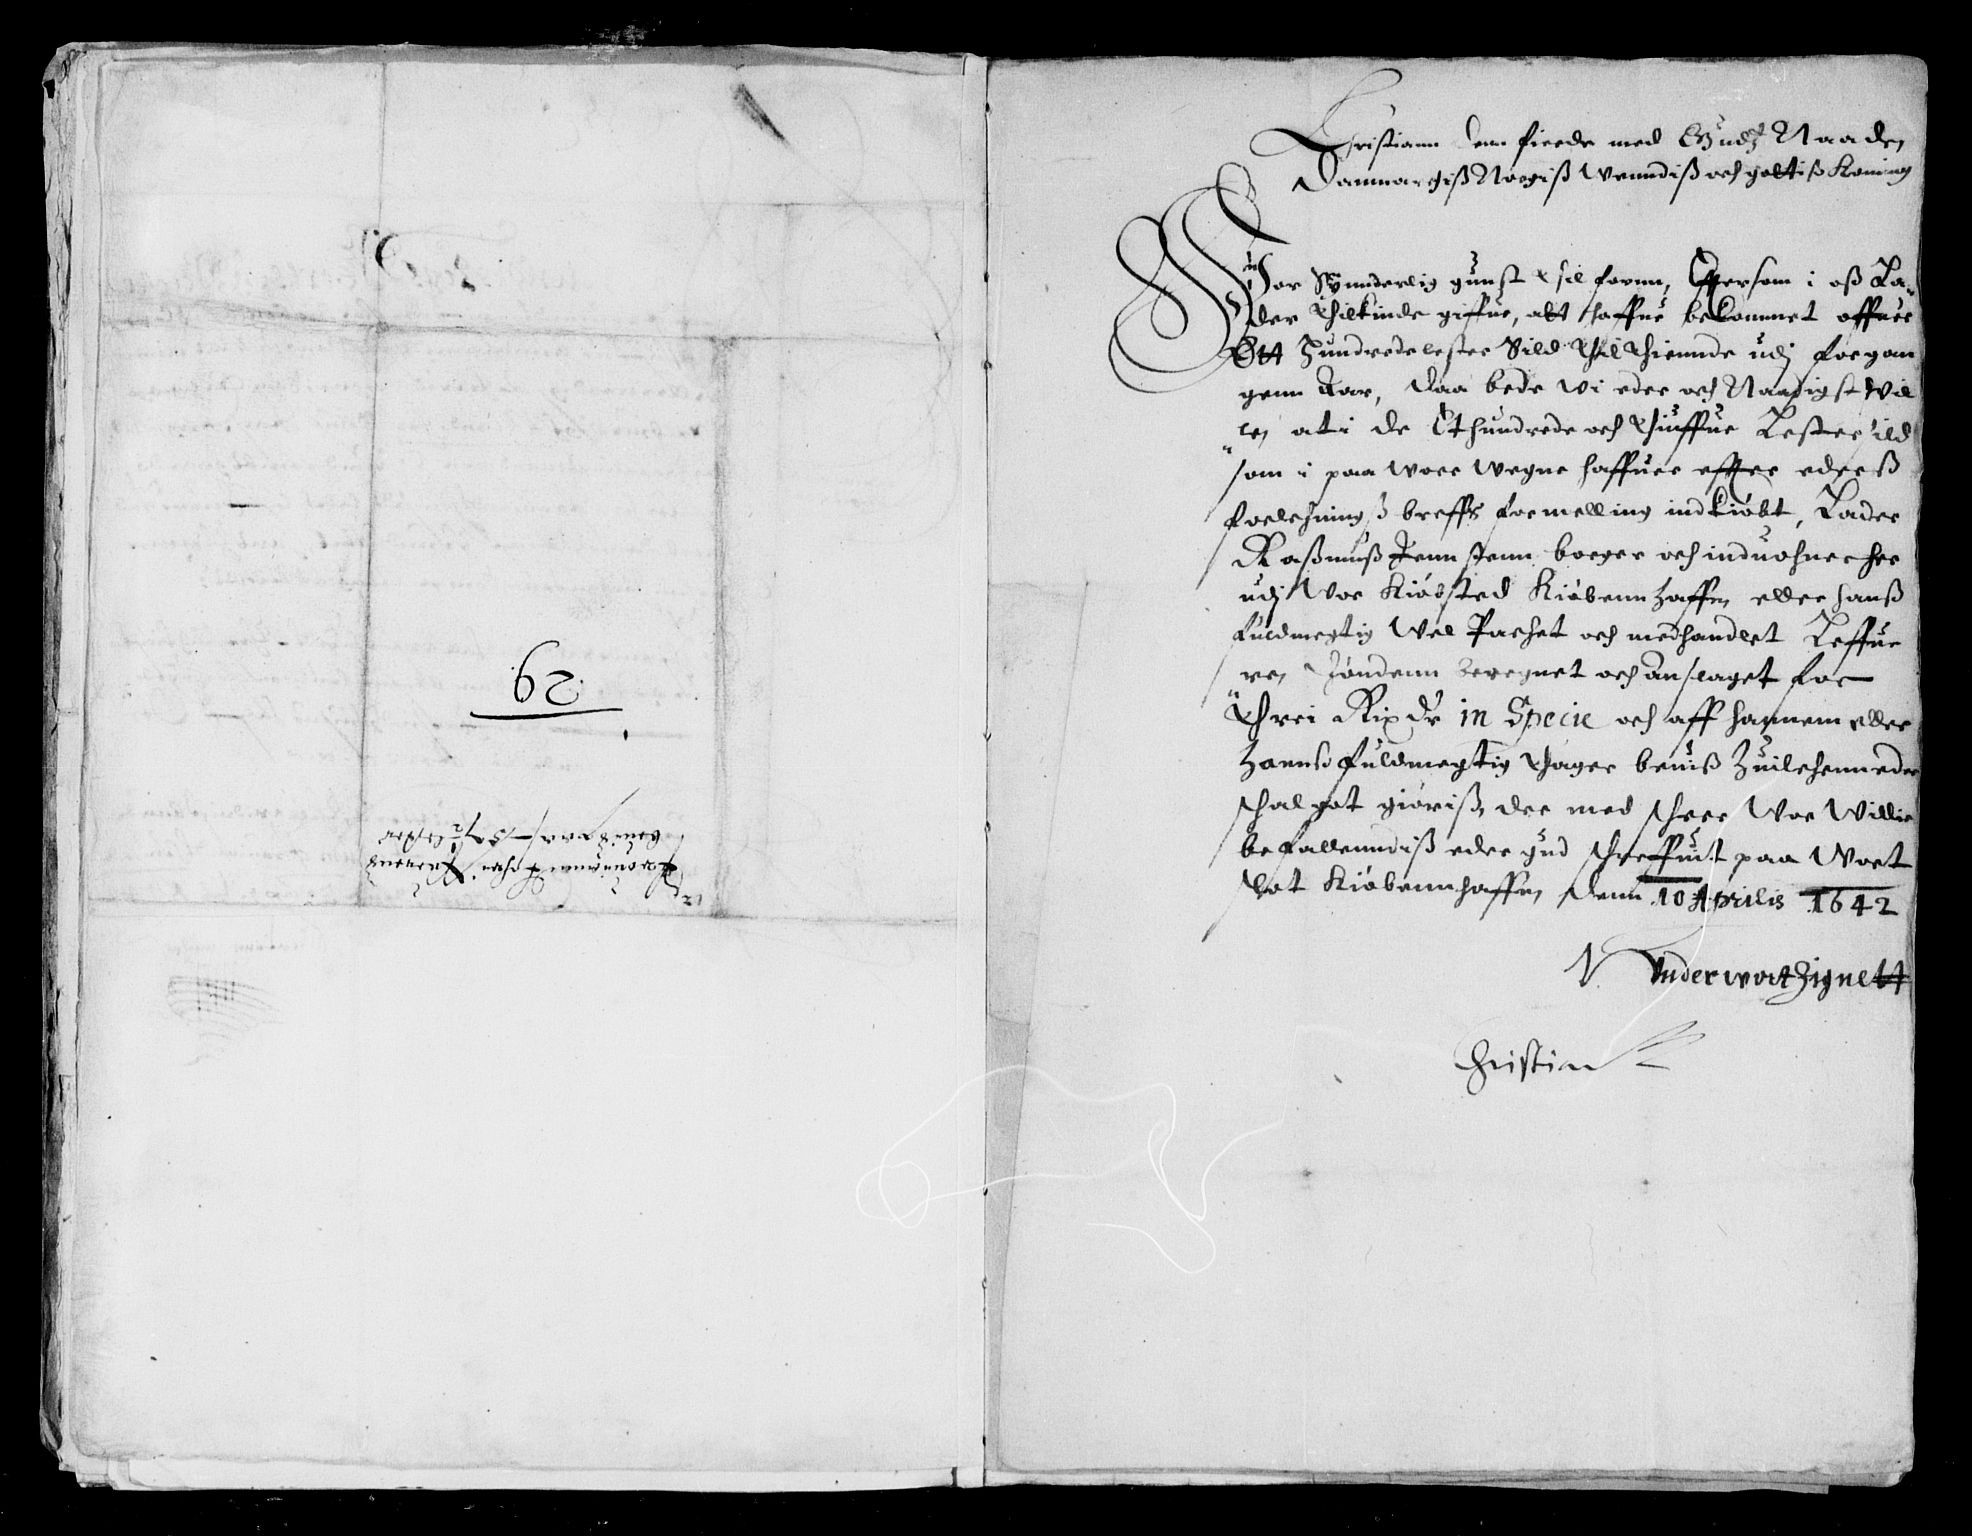 62
Christiann denn fierde med Gudz Naade
Danmargiß Norgiß Wenndiß och gottiß Koning
Wor Synnderlig gunst thil fornn, Eftersom i oß La-
der thilkinde giffue, att haffue bekommet offuer
Ett Hundrede lester Sild thil thiennde udj forgan
genn Aar, Daa bede wi eder och Naadigst Wil
le, at i de Et hundrede och thiuffue Lester sild
som i paa wore wegne haffuer effter ederß
forlehningß breffs formelling indkiøbt, Lader
Raßmuß Jennsenn borger och induohner her
udj Wor Kiøbsted Kiøbennhaffn eller hanß
fuldmegtig Wel Pachet och medhandlet Leffue
re, Tøndenn beregnet och anslaget for
threi Rix dr in Specie och aff hannem eller
hannß fuldmegtig thager beuiß Huilchenn eder
schal got giøriß, der med scheer Wor Willie
befallenndiß eder gud schreffuit paa Wort
slot Kiøbennhaffn, Denn 10 Aprilis 1642
Vnder wort Zignett
Christian